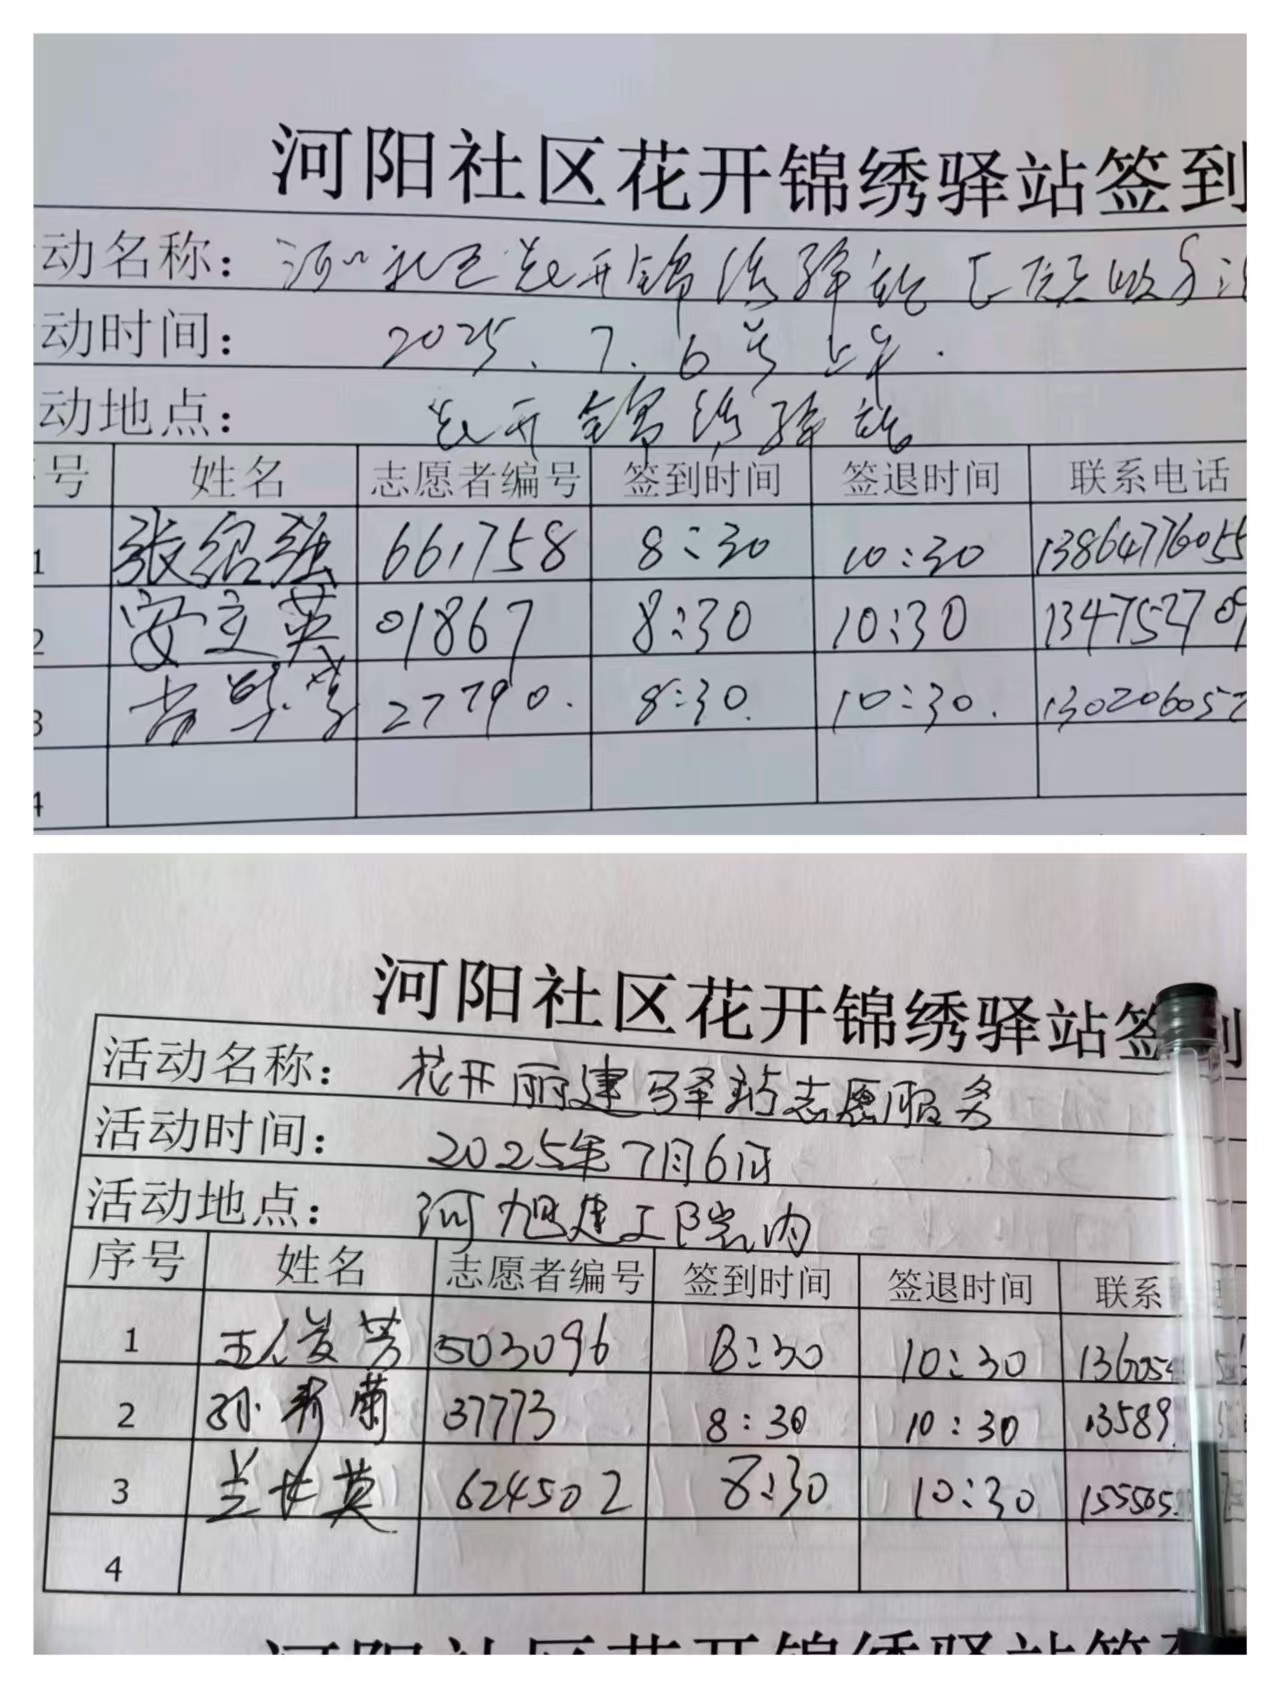 河阳社区花开锦绣驿站签到
动名称：河阳社区花开锦绣驿站志愿服务活
动时间：2025.7.6号上午.
动地点：花开锦绣驿站
号 姓名 志愿者编号 签到时间 签退时间 联系电话
1 张绍强 661758 8:30 10:30 13864776055
2 安立英 01867 8:30 10:30 134752709
3 27790. 8:30. 10:30. 130206052
4
河阳社区花开锦绣驿站签到
活动名称：花开丽建驿站志愿服务
活动时间：2025年7月6日
活动地点：河旭建工院内
序号 姓名 志愿者编号 签到时间 签退时间 联系
1 王俊芳 503096 8:30 10:30 136054
2 孙秀菊 37773 8:30 10:30 13589
3 兰女英 624502 8:30 10:30 155505
4
河阳社区花开锦绣驿站签到